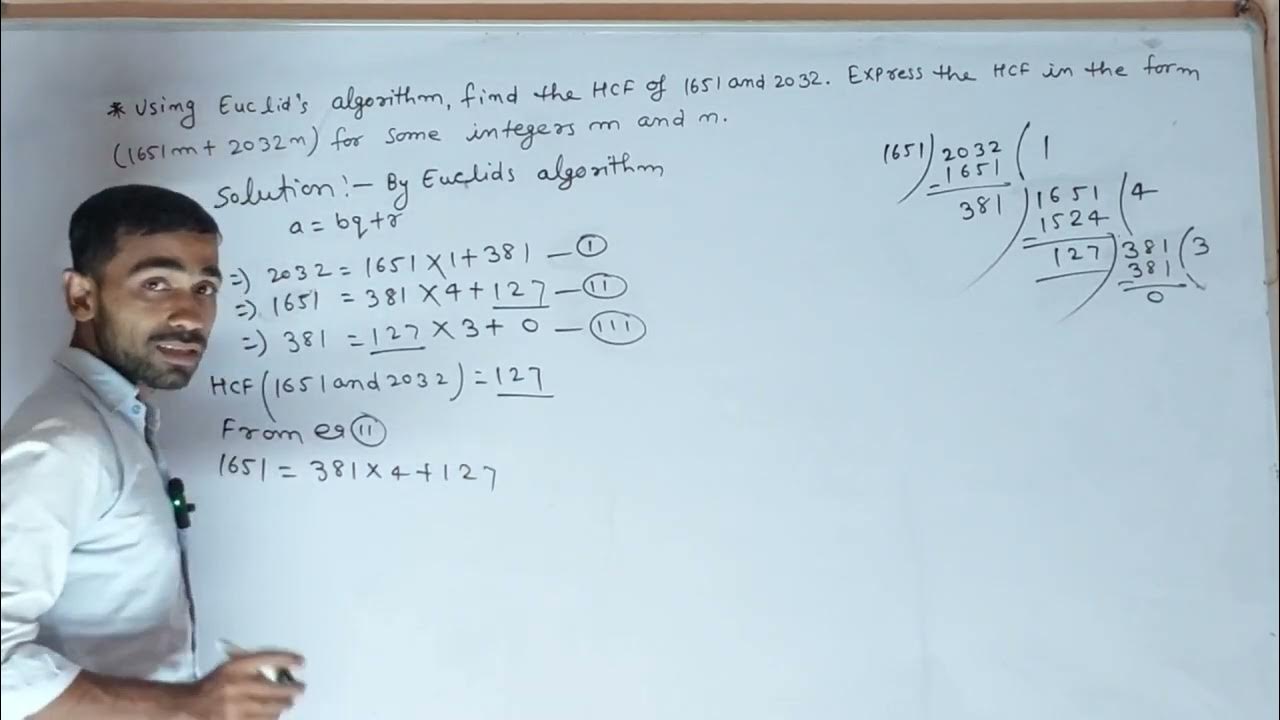 * Using Euclid's algorithm, find the HCF of 1651 and 2032. Express the HCF in the form
(1651m + 2032n) for some integers m and n.
Solution:- By Euclids algorithm
a = bq+r
=) 2032 = 1651 × 1 + 381 — (I)
=) 1651 = 381 × 4 + 127 — (II)
=) 381 = 127 × 3 + 0 — (III)
HCF (1651 and 2032) = 127
From eq (II)
1651 = 381 × 4 + 127
1651) 2032 ( 1
- 1651
381 ) 1651 ( 4
- 1524
127 ) 381 ( 3
- 381
0